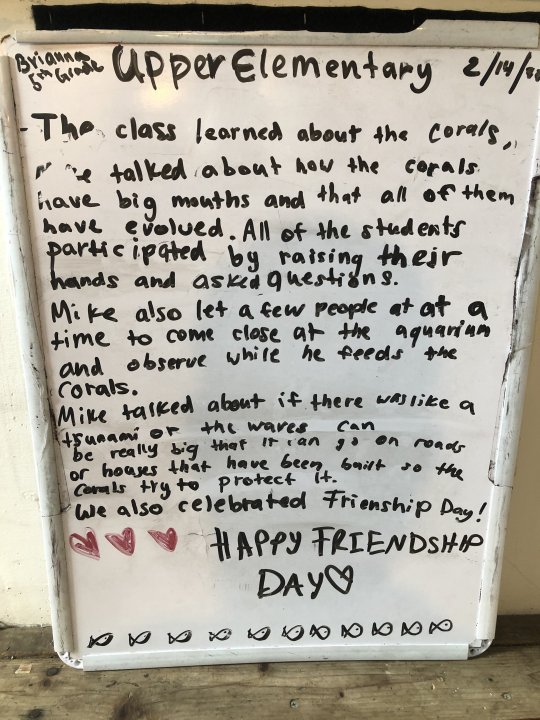 Brianna
5th Grade
Upper Elementary 2/14/
- The class learned about the corals.
talked about how the corals
have big mouths and that all of them
have evolved. All of the students
participated by raising their
hands and asked questions.
Mike also let a few people at at a
time to come close at the aquarium
and observe while he feeds the
corals.
Mike talked about if there was like a
tsunami or the waves can
be really big that it can go on roads
or houses that have been built so the
corals try to protect it.
We also celebrated Frienship Day!
HAPPY FRIENDSHIP
DAY